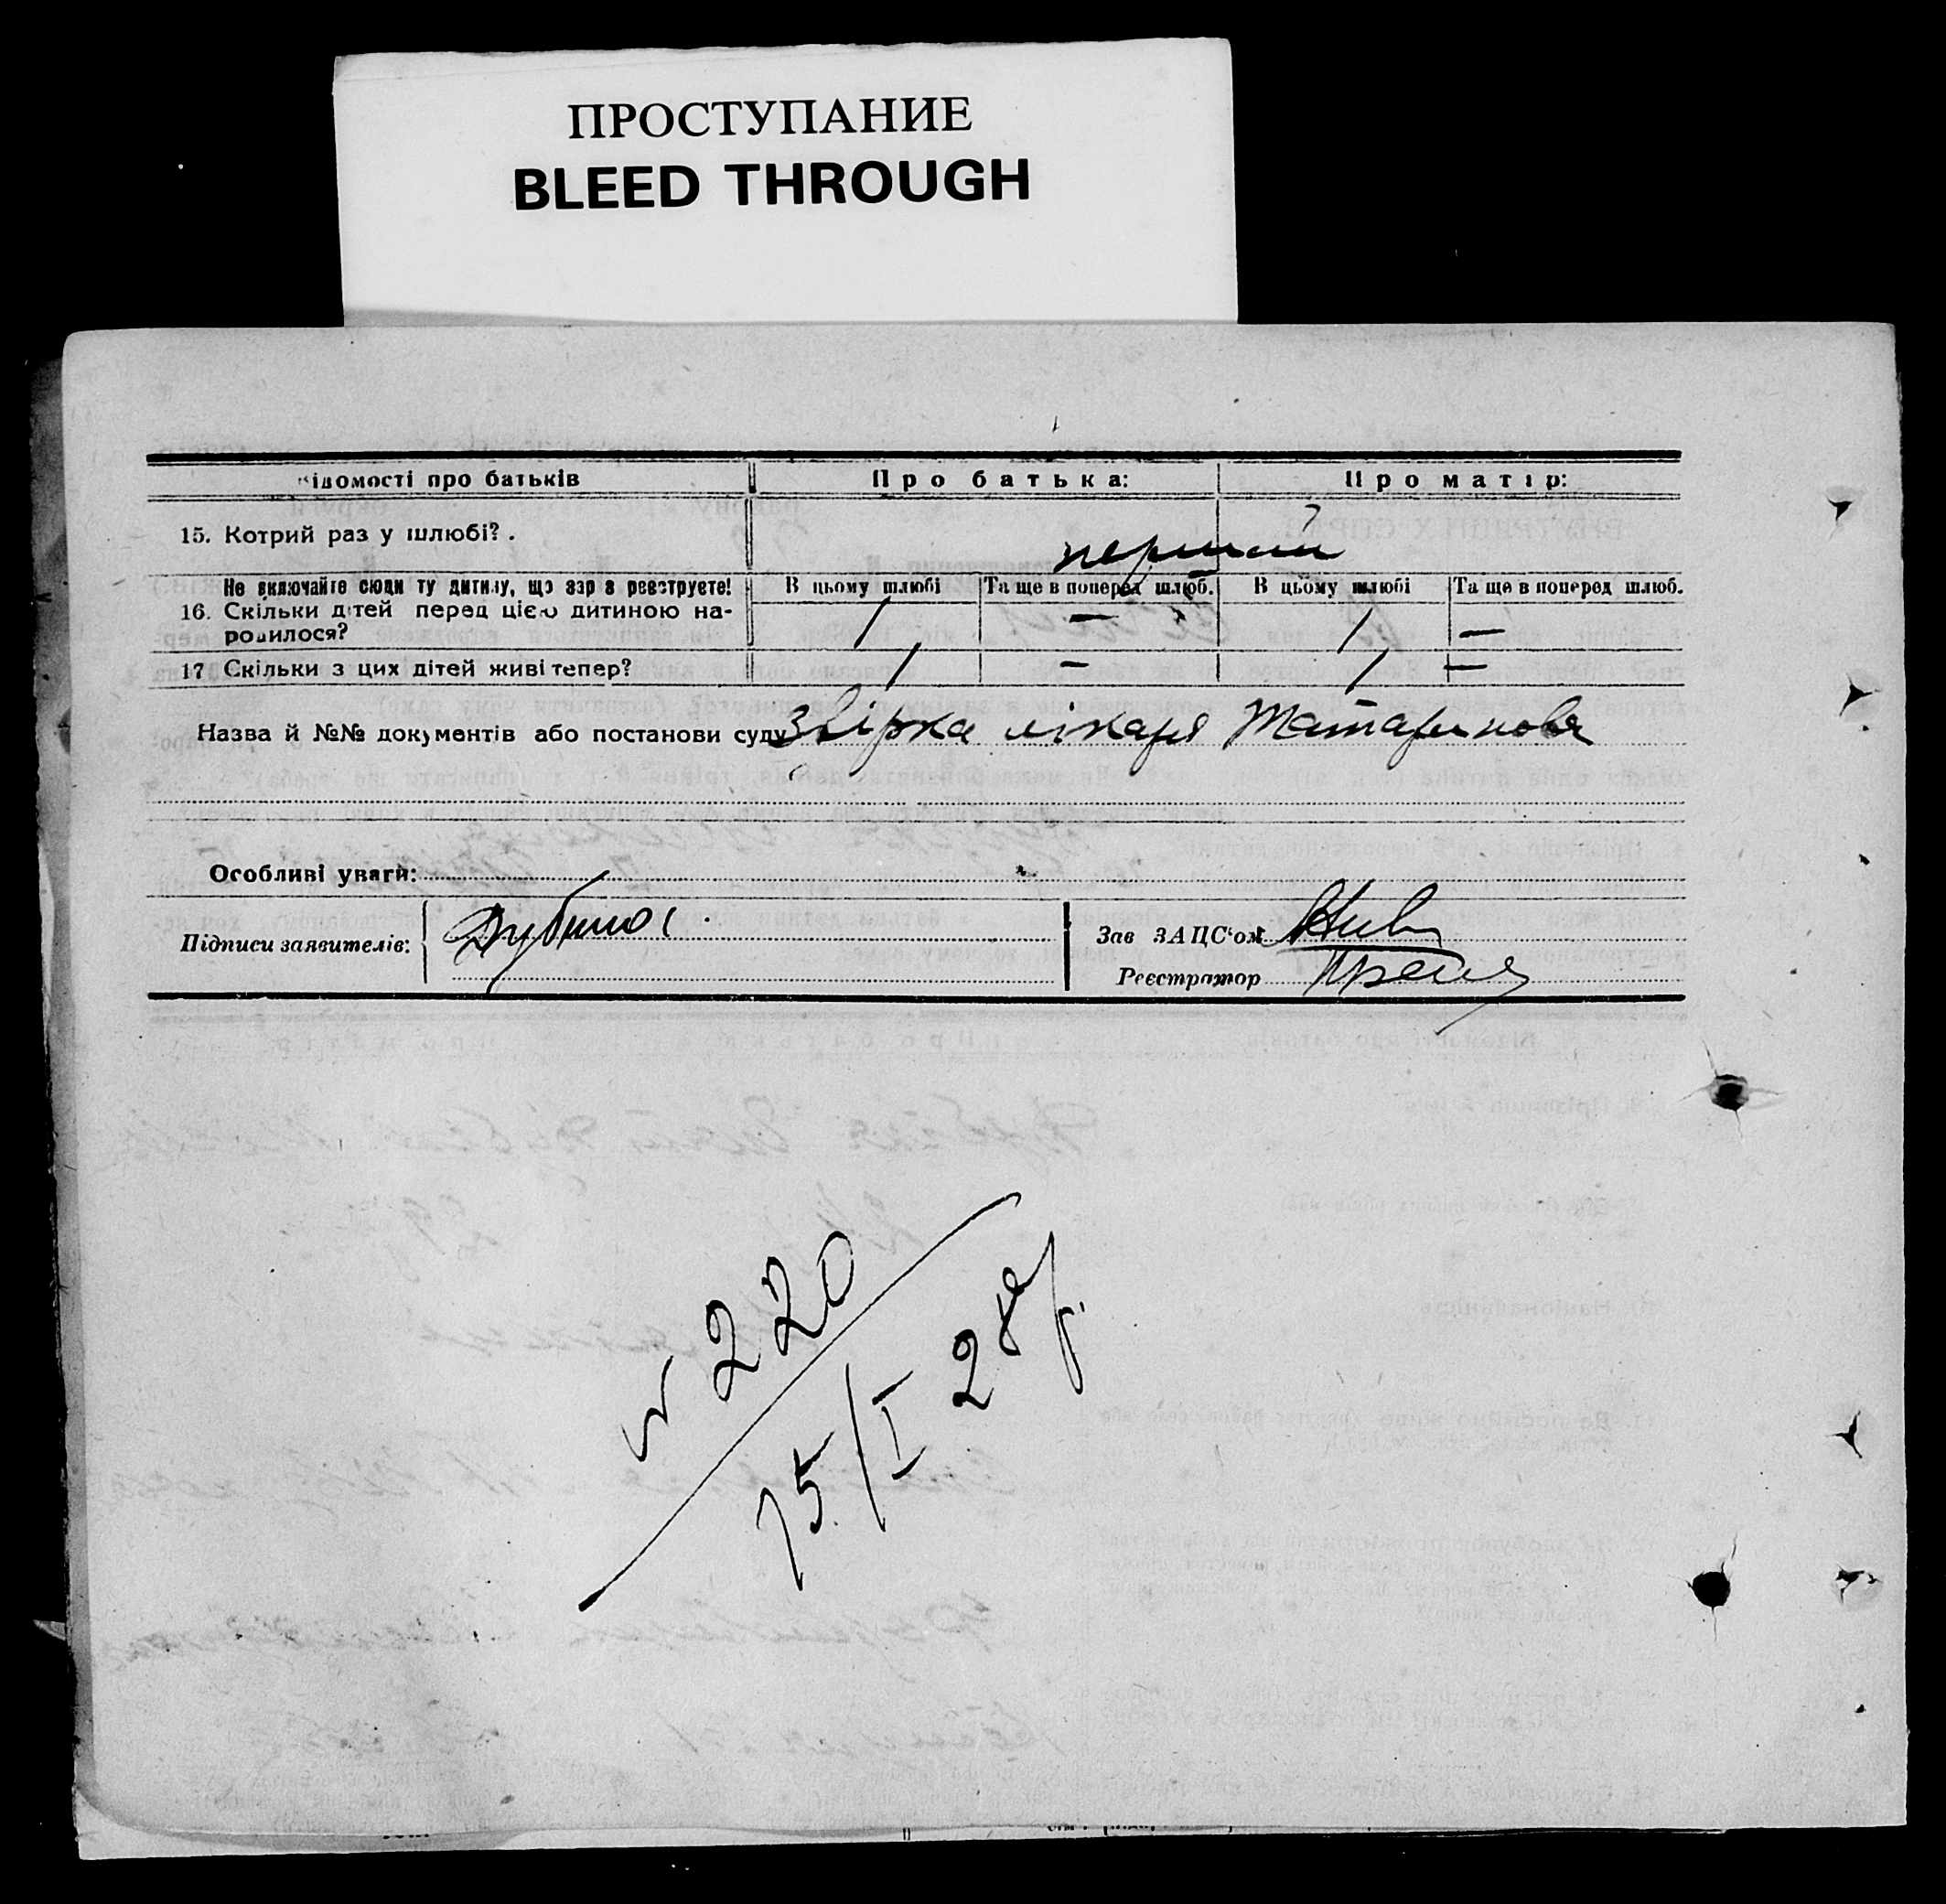 ПРОСТУПАНИЕ
BLEED THROUGH
відомості про батьків Про батька: Про матір:
15. Котрий раз у шлюбі? . перший
Не включайте сюди ту дитину, що зараз реєструєте! В цьому шлюбі Та ще в поперед шлюб. В цьому шлюбі Та ще в поперед шлюб.
16. Скільки дітей перед цією дитиною на-
родилося? 1 — 1 —
17 Скільки з цих дітей живі тепер? 1 — 1 —
Назва й №№ документів або постанови суду Звірка лікаря Татаринова
Особливі уваги:
Підписи заявителів: Зав ЗАЦС'ом
Реєстратор
№ 220
15/I 28 р.